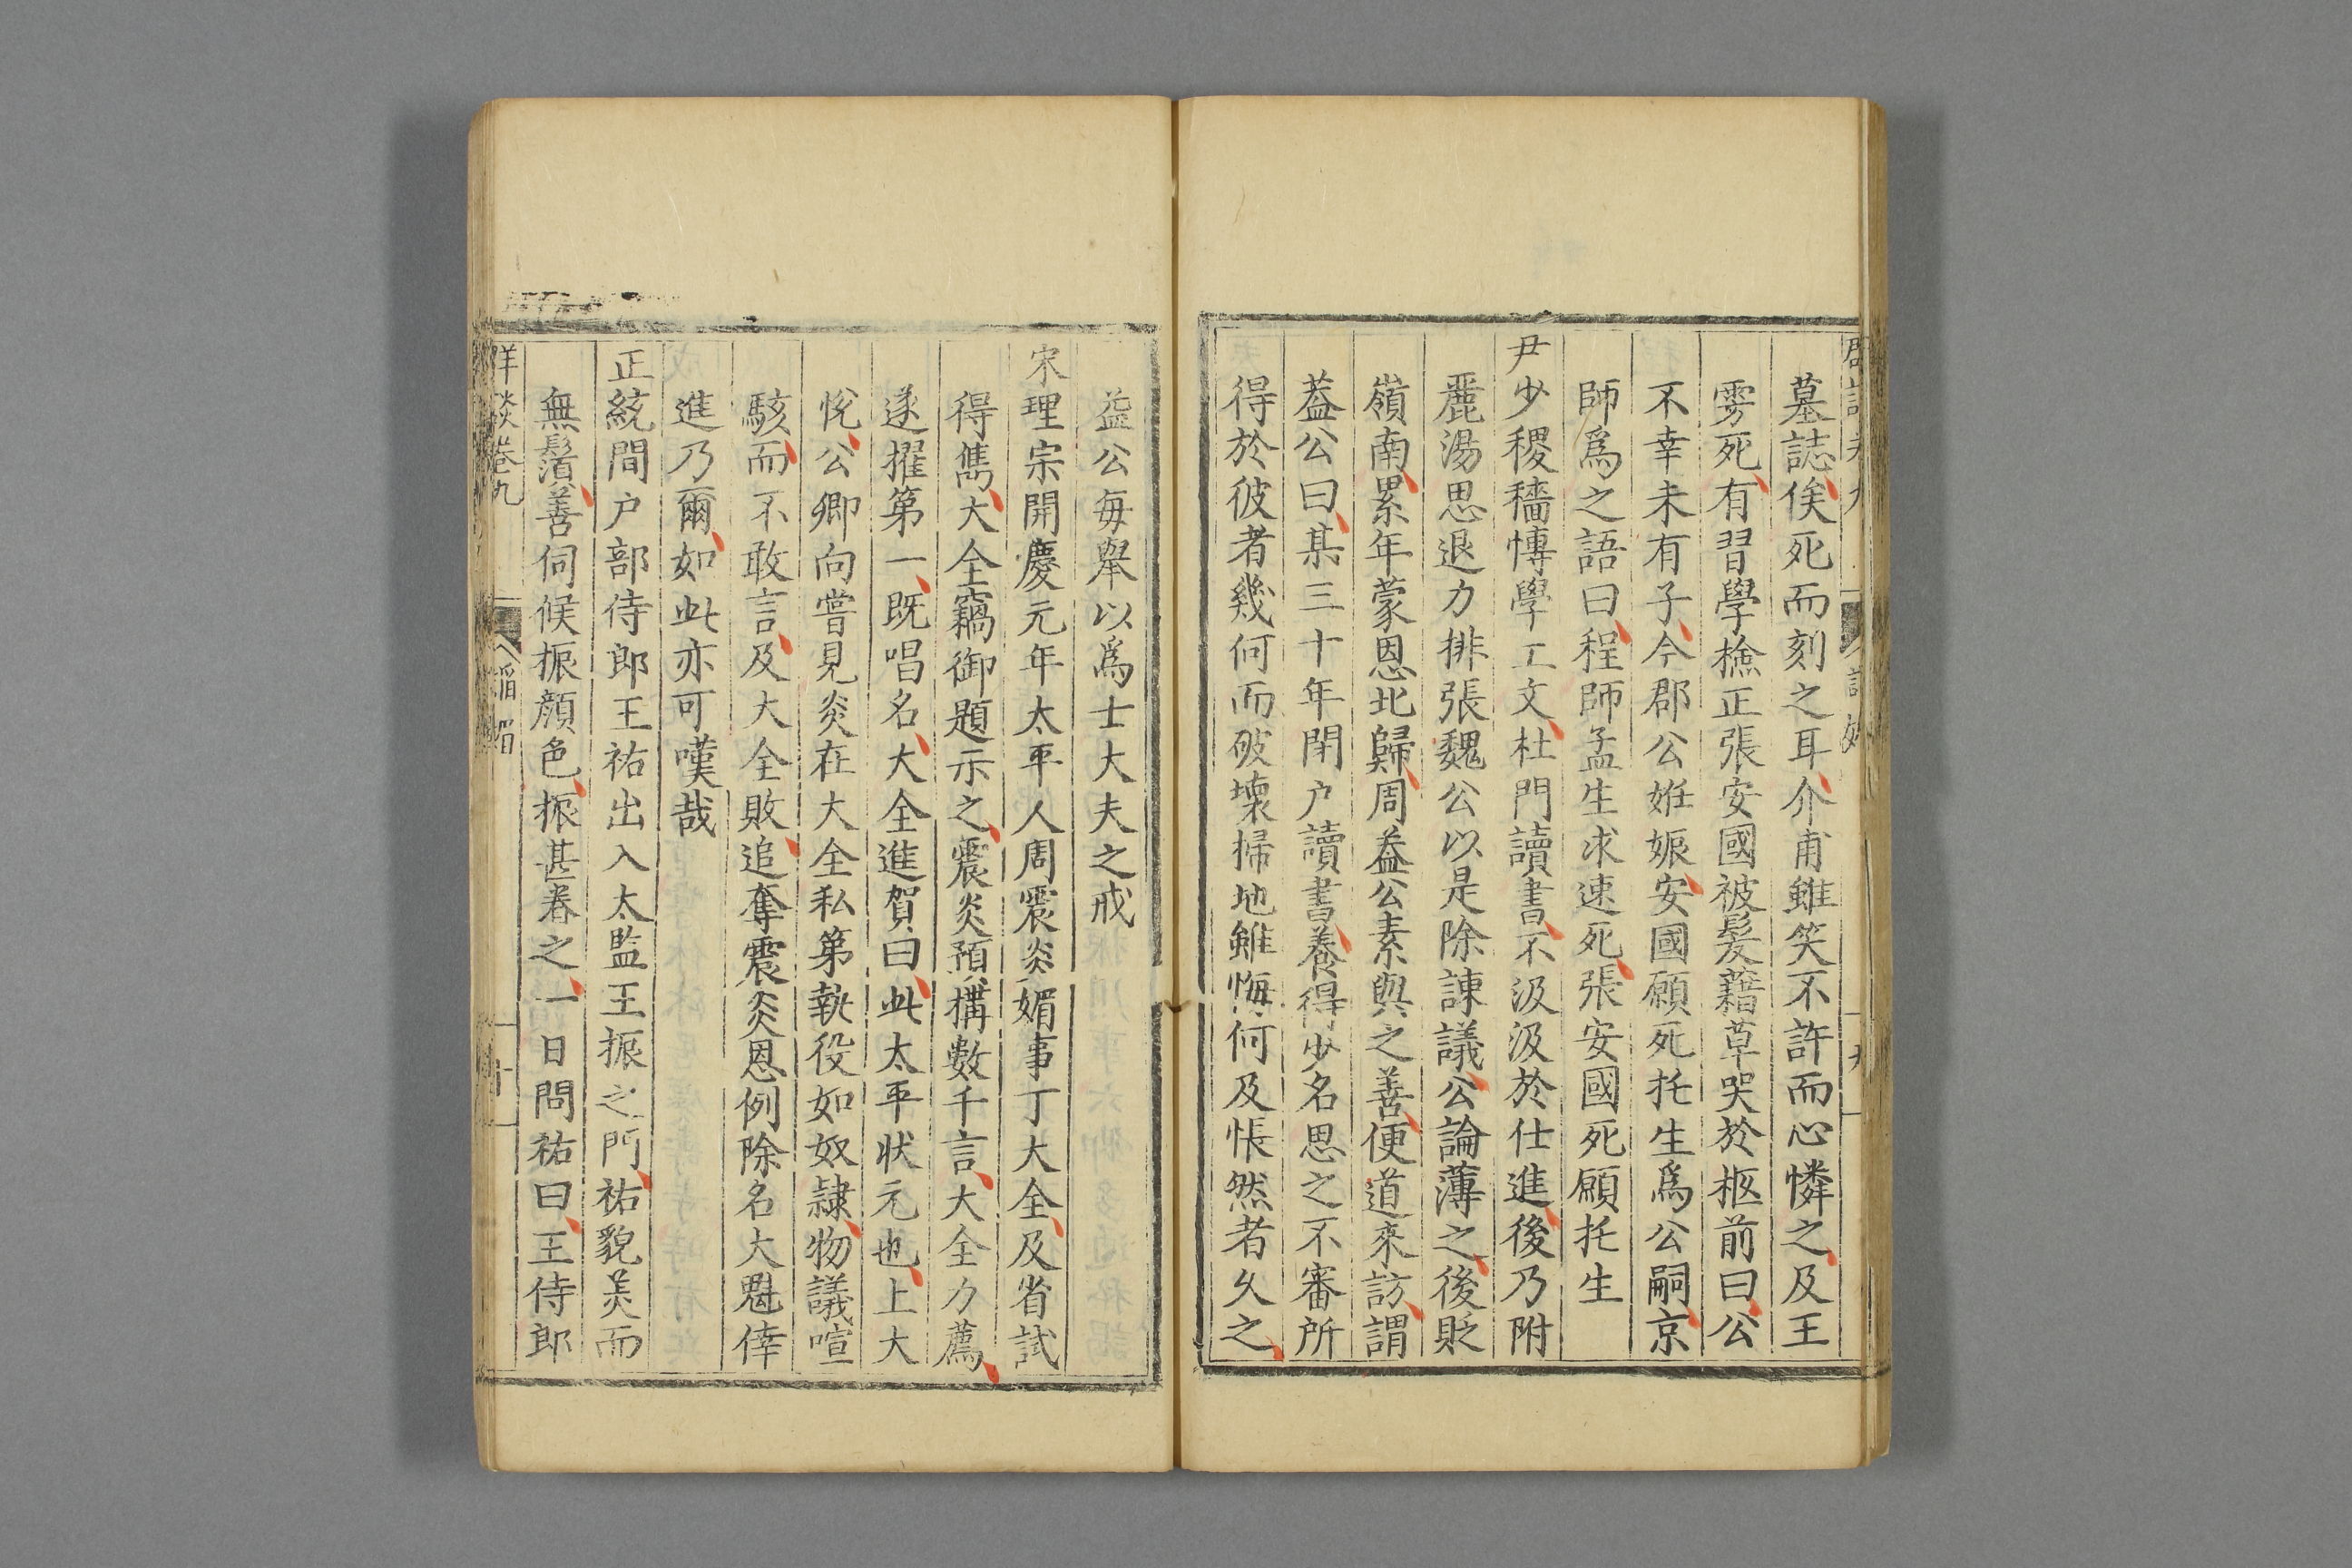 墓誌俟死而刻之耳介甫雖笑不許而心憐之及王
雱死有習學撿正張安國被髮藉草哭於柩前曰公
不幸未有子今郡公姙娠安國願死托生爲公嗣京
師爲之語曰程師孟生求速死張安國死願托生
尹少稷穡愽學工文杜門讀書不汲汲於仕進後乃附
麗湯思退力排張魏公以是除諫議公論薄之後貶
嶺南累年蒙恩北歸周益公素與之善便道來訪謂
益公曰某三十年閉户讀書養得少名思之不審所
得於彼者幾何而破壞掃地雖悔何及悵然者久之
益公每舉以爲士大夫之戒
宋理宗開慶元年太平人周震炎媚事丁大全及省試
得雋大全竊御題示之震炎預構數千言大全力薦
遂擢第一既唱名大全進賀曰此太平狀元也上大
恱公卿向嘗見炎在大全私第執役如奴隷物議喧
駭而不敢言及大全敗追奪震炎恩例除名大魁倖
進乃爾如此亦可嘆哉
正統間户部侍郎王祐出入太監王振之門祐貌美而
無鬚善伺候振顔色振甚眷之一日問祐曰王侍郎
卷九